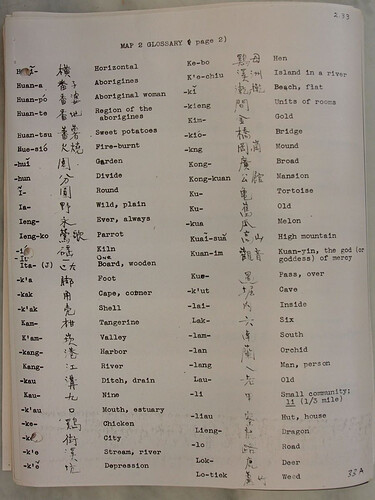 2.33
MAP 2 GLOSSARY ( page 2)
橫 Horizontal
Huan-a 番子 Aborigines
Huan-pó 番婆 Aboriginal woman
Huan-te 番地 Region of the
aborigines
Huan-tsu 番薯 Sweet potatoes
Hue-sió 火燒 Fire-burnt
-huĭ 園 Garden
-hun 分 Divide
Ĭ- 圓 Round
Ia- 野 Wild, plain
Ieng- 永 Ever, always
Ieng-ko 鶯歌
Kiln
One
Ita- (J) Board, wooden
-k'a 腳 Foot
-kak 角 Cape, corner
-k'ak 壳 Shell
Kam- 柑 Tangerine
K'am- 崁 Valley
-kang- 港 Harbor
Kang- 江 River
-kau 溝 Ditch, drain
Kau- 九 Nine
-k'au 口 Mouth, estuary
-ke- 鷄 Chicken
街 City
-k'e 溪 Stream, river
Depression
Ke-bo 鷄母 Hen
K'e-chiu 溪洲 Island in a river
-kĭ Beach, fist
-kieng 間 Units of rooms
Kim- 金 Gold
-kio- 橋 Bridge
-kng Mound
Kong- 廣 Broad
Kong-kuan 公館 Mansion
Ku- 龜 Tortoise
Ku- 舊 Old
-kua 瓜 Melon
Kuai-suá 山 High mountain
Kuan-im 觀音 Kuan-yin, the god (or
goddess) of mercy
Kue- 過 Pass, over
-k'ut 堀 Cave
-lai- 內 Inside
Lak- 六 Six
-lam- 南 South
-lan 蘭 Orchid
-lan 人 Man, person
Lau- 老 Old
-li 里 Small community;
li (1/3 mile)
-liau 寮 Hut, house
Lieng- 龍 Dragon
-lo 路 Road
Lok- 鹿 Deer
Lo-tiek Weed
33A